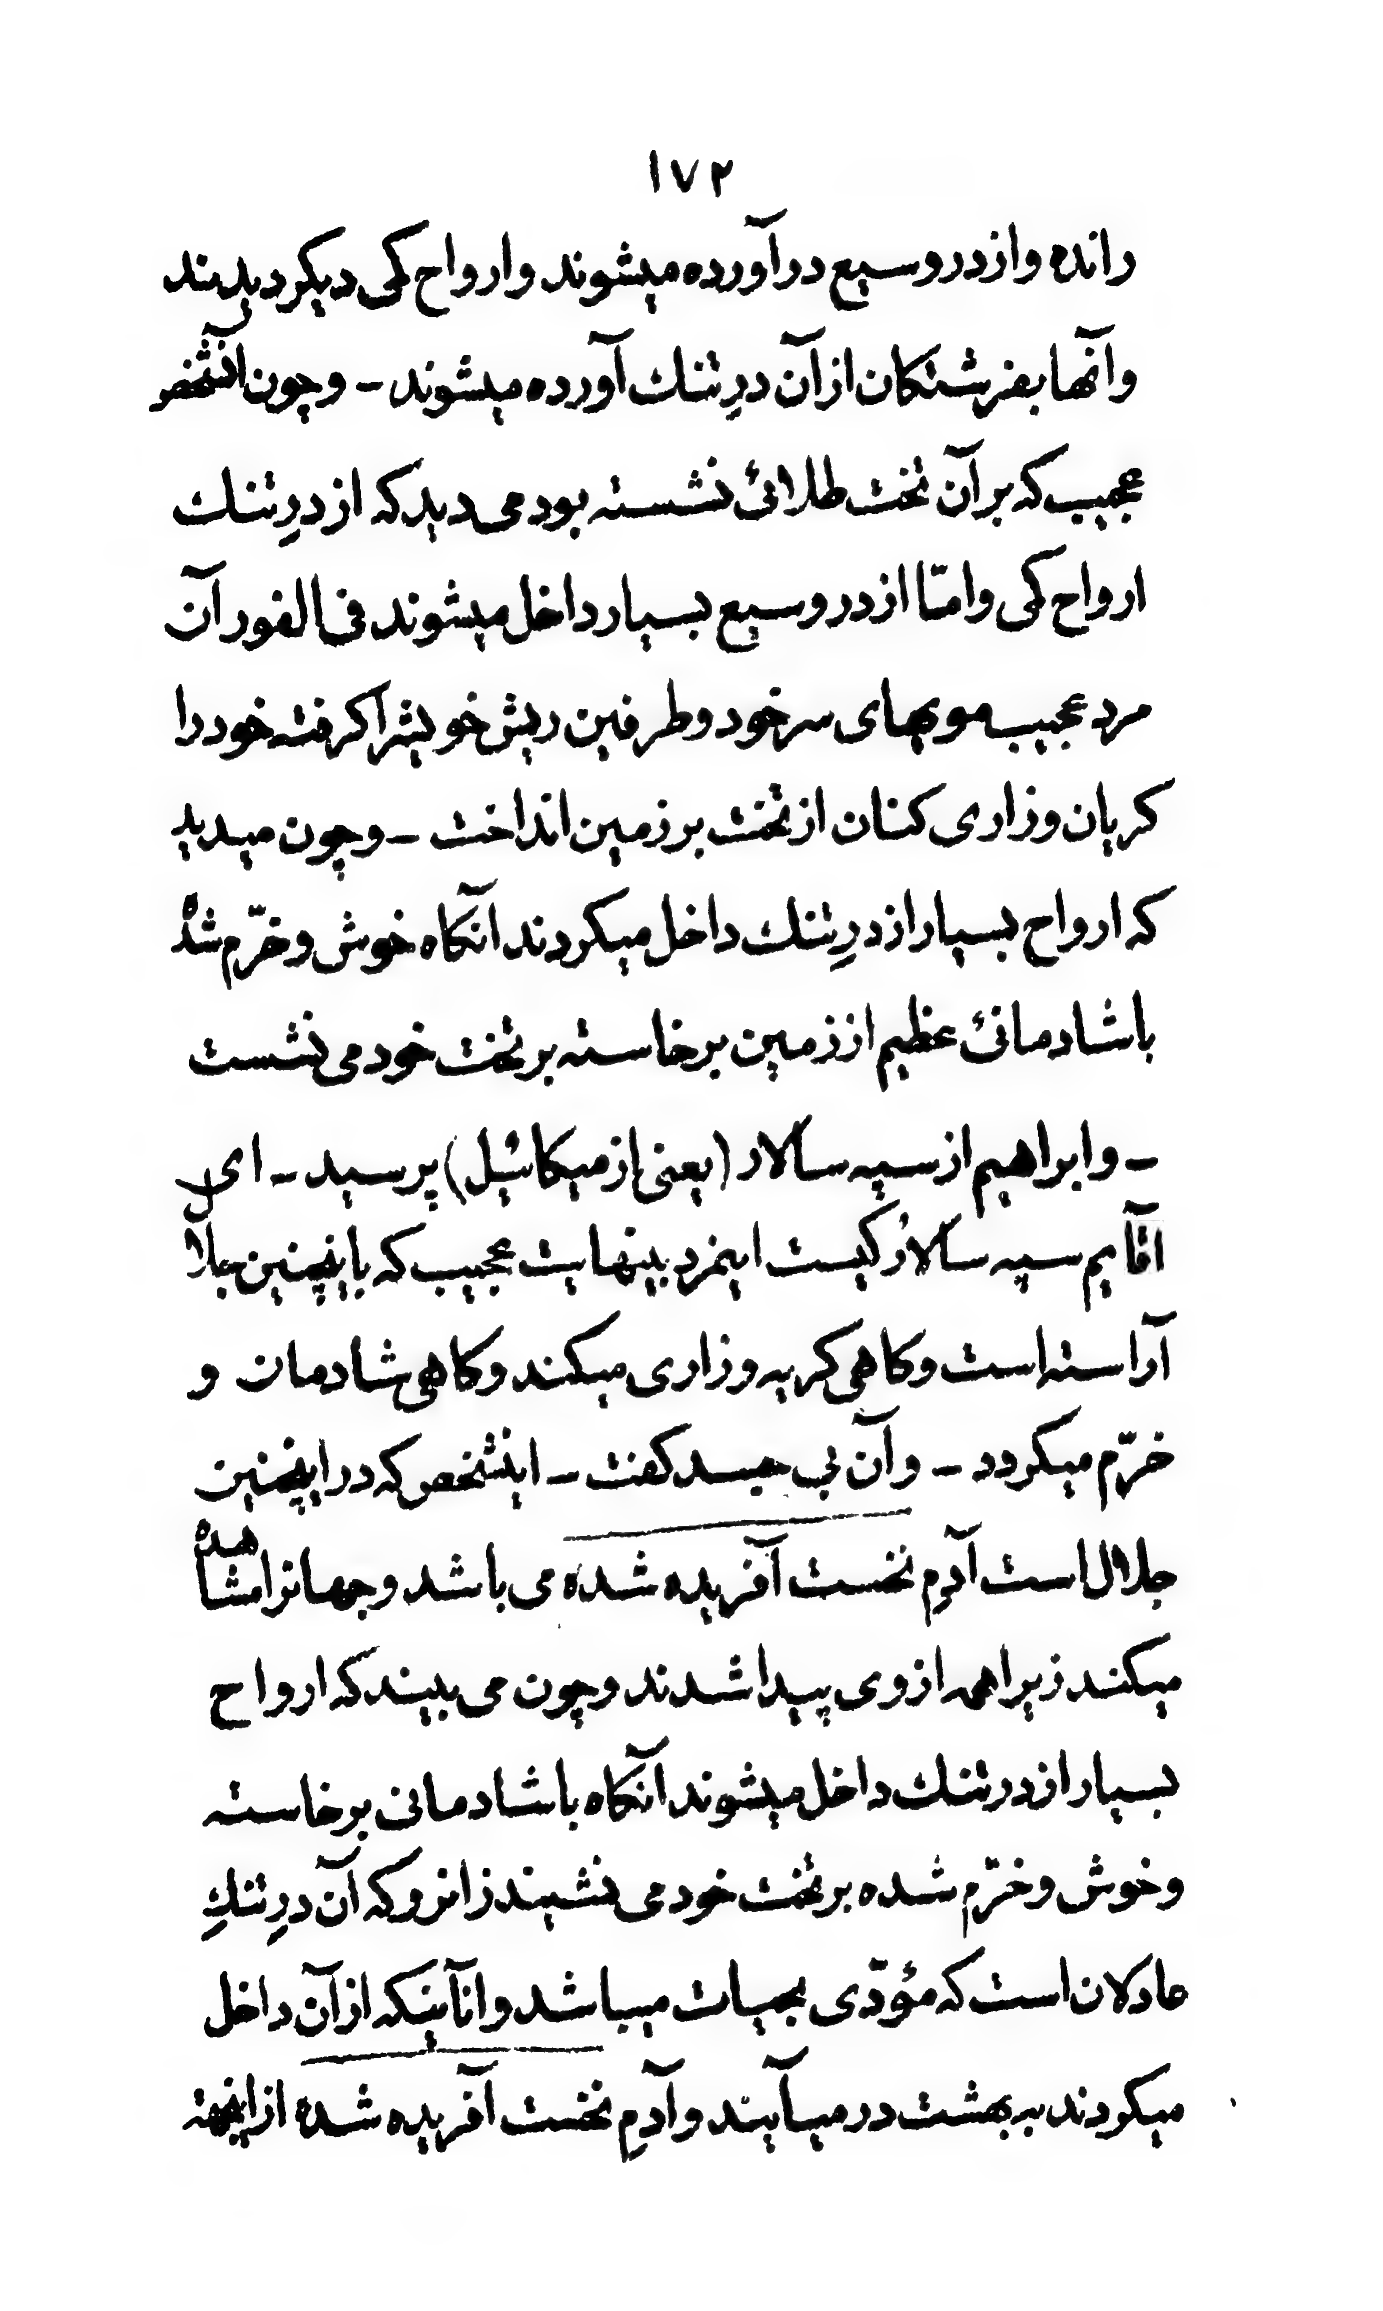 ۱۷۲
رانده و از در وسیع در آورده میشوند و ارواح کمی دیکر دیدند
و آنها بفرشتکان از آن درِ تنك آورده میشوند - و چون آنشخص
عجیب که بر آن تخت طلائی نشسته بود می دید که از درِ تنك
ارواح کمی و امّا از در وسیع بسیار داخل میشوند فی الفور آن
مرد عجیب مویهای سر خود و طرفین ریش خویشرا کرفته خود را
کریان و زاری کنان از تخت بر زمین انداخت - و چون میدید
که ارواح بسیار از درِ تنك داخل میکردند آنکاه خوش و خرّم شده
با شادمانئ عظیم از زمین برخاسته بر تخت خود می نشست
- و ابراهیم از سپه سالار (یعنی از میکائیل) پرسید - ای
آقایم سپه سالار کیست اینمرد بینهایت عجیب که باینچنین جلال
آراسته است و کاهی کریه و زاری میکند و کاهی شادمان و
خرّم میکرود - و آن بی جسد کفت - اینشخص که در اینچنین
جلال است آدمِ نخست آفریده شده می باشد و جهانرا مشاهده
میکند زیرا همه از وی پیدا شدند و چون می بیند که ارواح
بسیار از در تنك داخل میشوند آنکاه با شادمانی برخاسته
و خوش و خرّم شده بر تخت خود می نشیند زانرو که آن درِ تنكِ
عادلان است که مؤدّی بحیات میباشد و آنانیکه از آن داخل
میکردند به بهشت در میآیند و آدمِ نخست آفریده شده از اینجهته